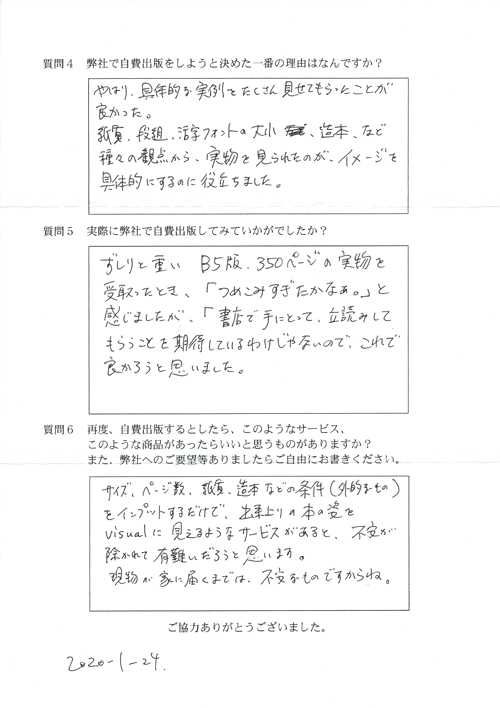 質問４ 弊社で自費出版をしようと決めた一番の理由はなんですか？
やはり、具体的な実例をたくさん見せてもらったことが
良かった。
紙質、段組、活字フォントの大小、造本、など
種々の観点から、実物を見られたのが、イメージを
具体的にするのに役立ちました。
質問５ 実際に弊社で自費出版してみていかがでしたか？
ずしりと重い B5版、350ページの実物を
受取ったとき、「つめこみすぎたかなぁ。」と
感じましたが、「書店で手にとって、立読みして
もらうことを期待しているわけじゃないので、これで
良かろうと思いました。
質問６ 再度、自費出版するとしたら、このようなサービス、
このような商品があったらいいと思うものがありますか？
また、弊社へのご要望等ありましたらご自由にお書きください。
サイズ、ページ数、紙質、造本などの条件（外的なもの）
をインプットするだけで、出来上りの本の姿を
visualに見えるようなサービスがあると、不安が
除かれて有難いだろうと思います。
現物が家に届くまでは、不安なものですからね。
ご協力ありがとうございました。
2020-1-24.